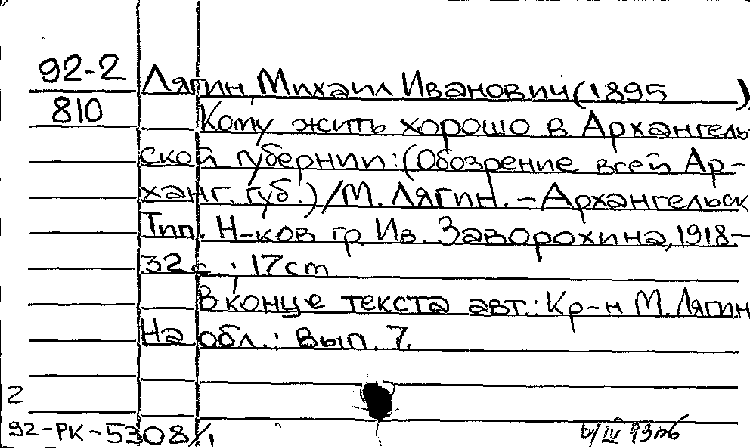 92-2
810
Лягин, Михаил Иванович (1895 )
Кому жить хорошо в Архангель
ской губернии: (Обозрение всей Ар-
ханг. губ.) / М. Лягин. – Архангельск
Тип. Н-ков гр. Ив. Заворохина, 1918.–
32 с.; 17 cm
В конце текста авт.: Кр-н М. Лягин
На обл.: Вып. 7.
2
92-РК-5308/1